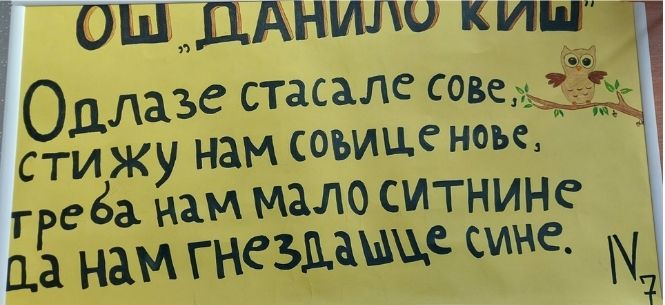 ОШ „ДАНИЛО КИШ“
Одлазе стасале сове,
стижу нам совице нове,
треба нам мало ситнине
да нам гнездашце сине.
IV7